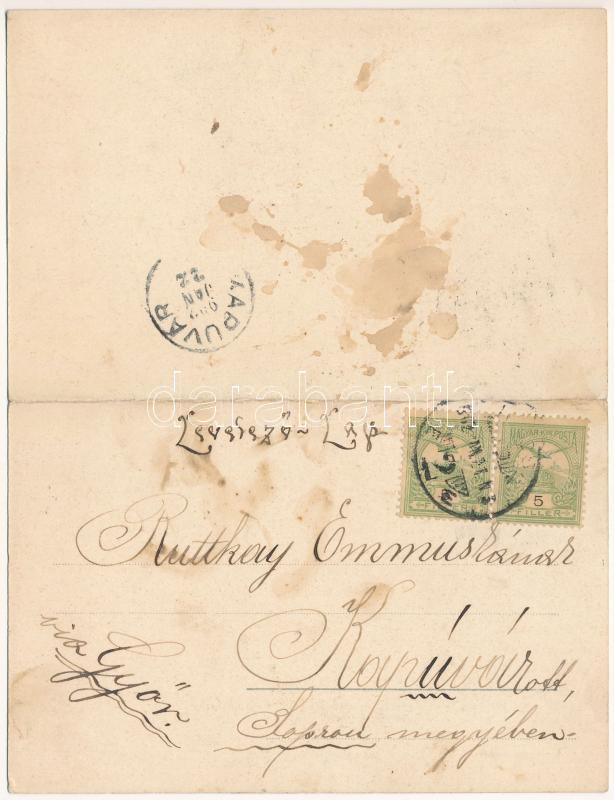 KAPUVÁR
902
JAN
22
darabanth
Levelező-Lap
MAGYAR KIR. POSTA
5
FILLER
Ruttkay Emmuskának
Kapúvárott,
via Győr.
Sopron megyében-